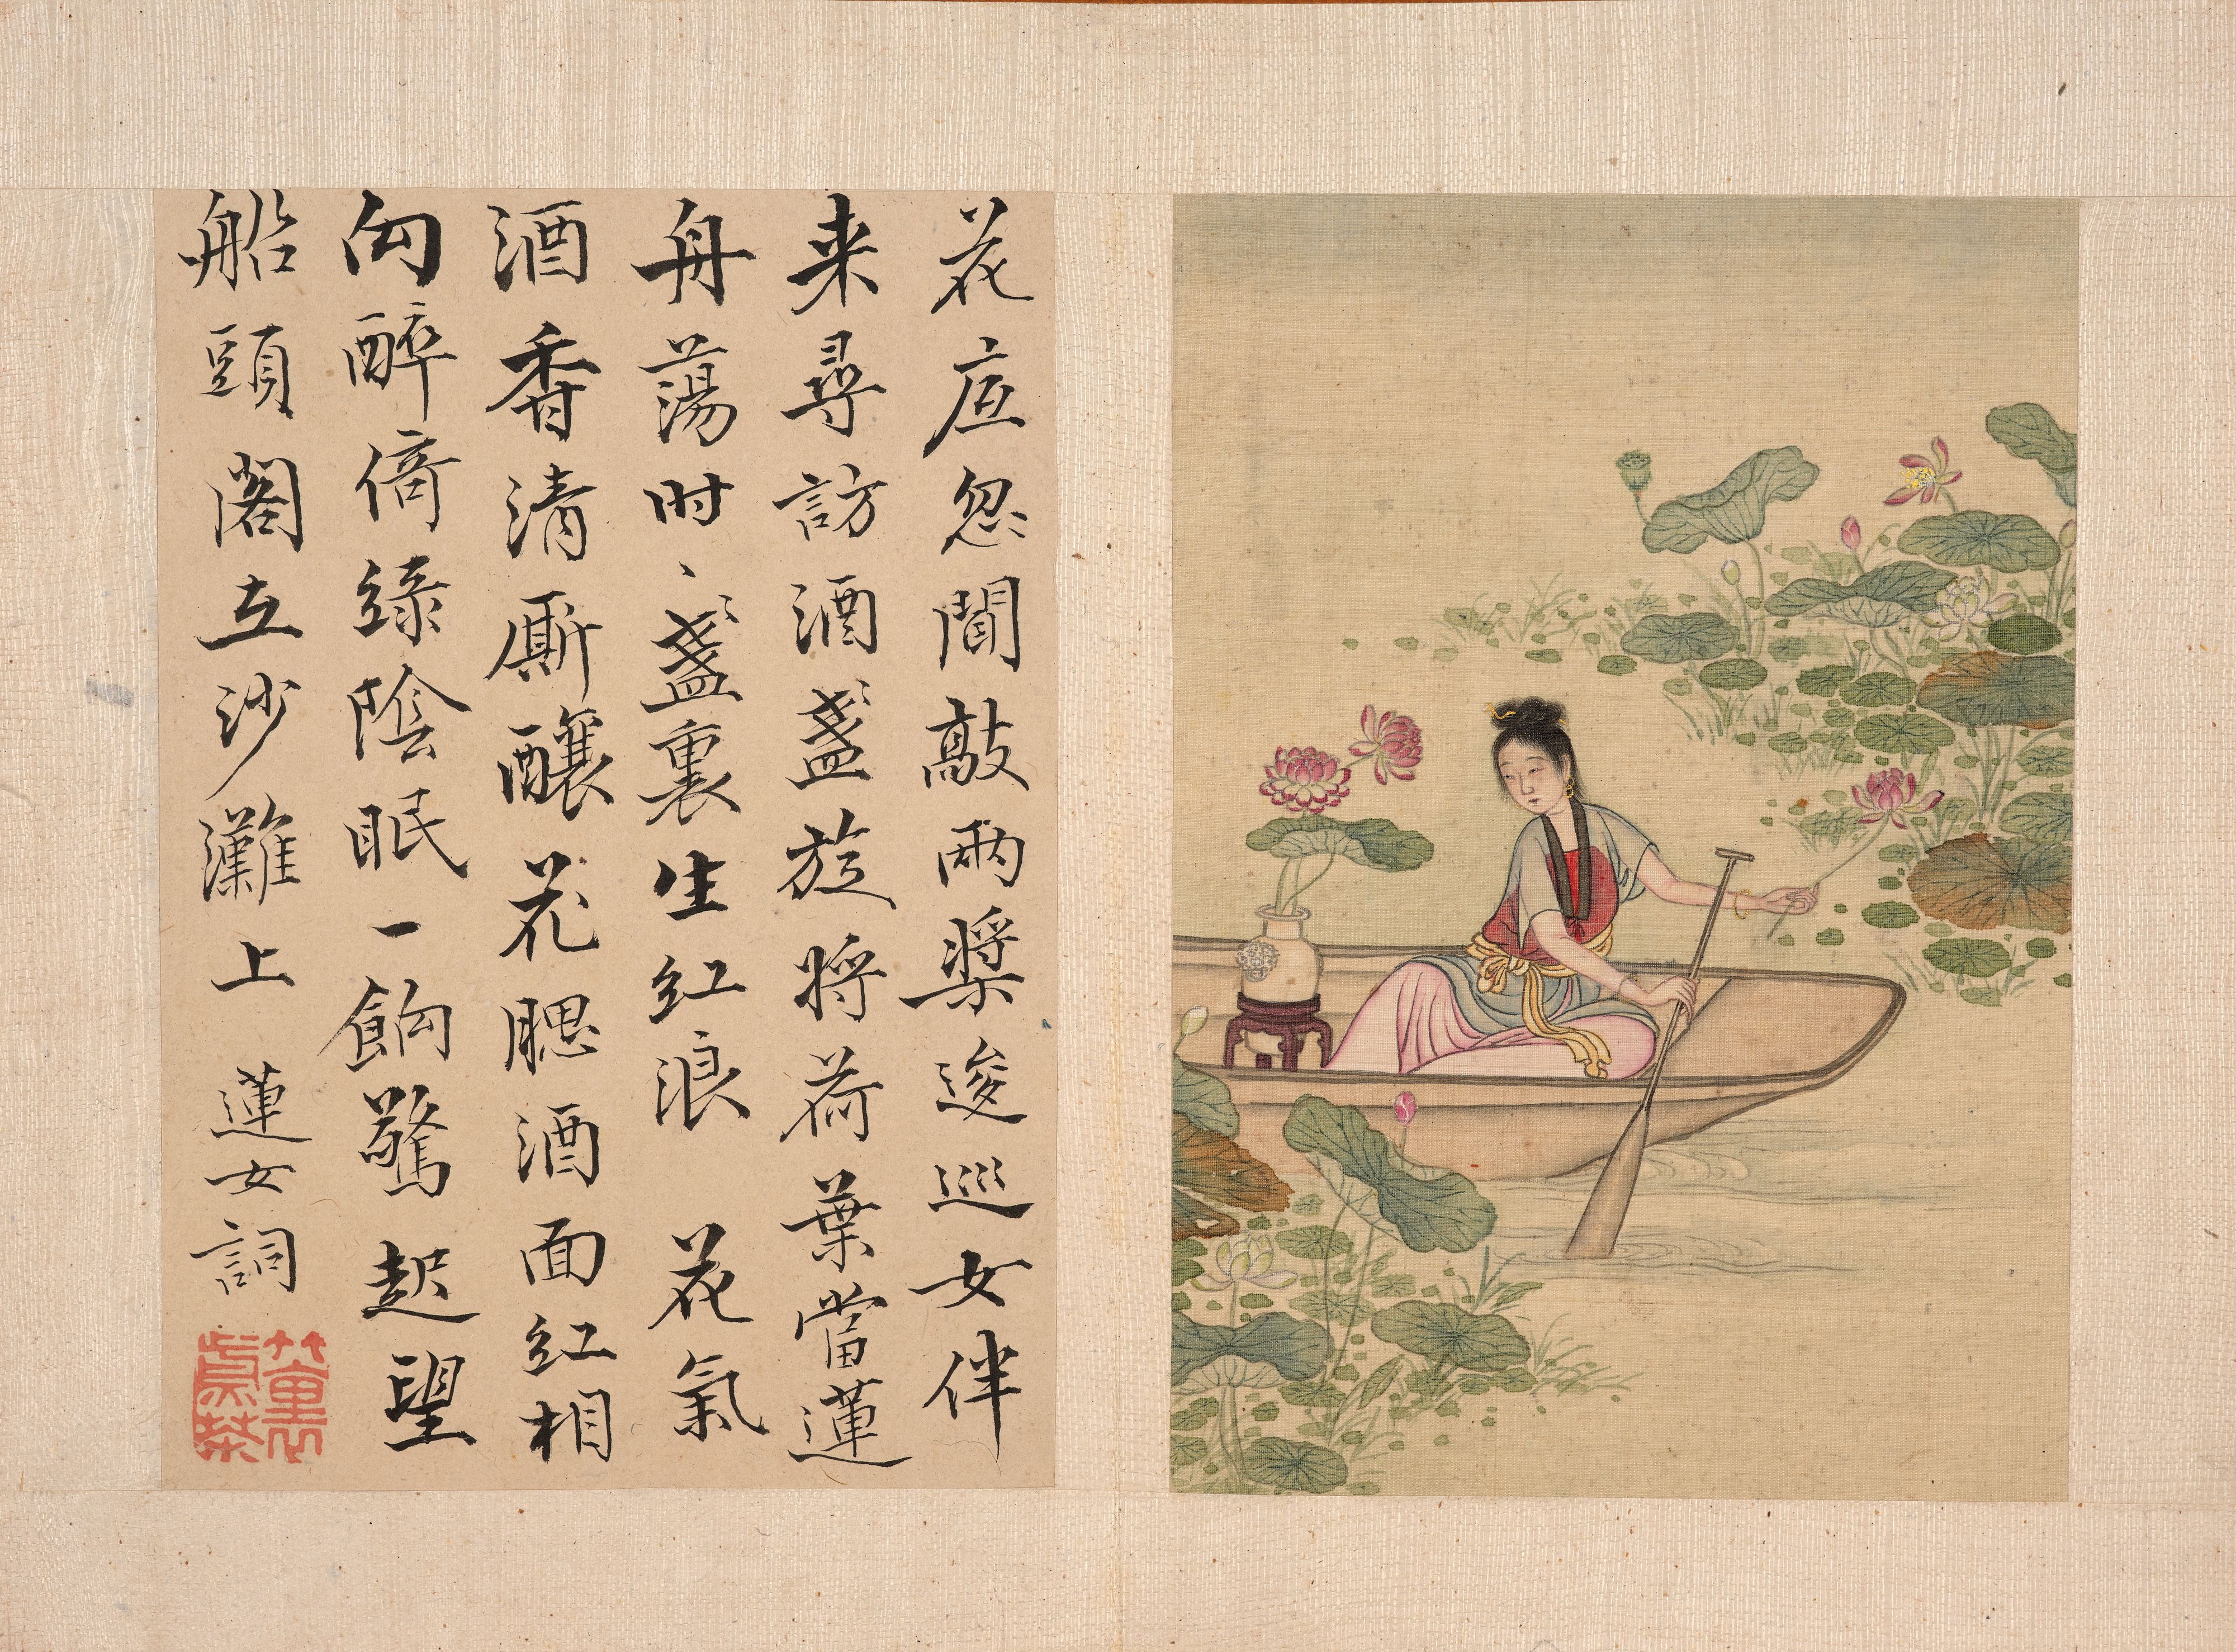 花底忽聞敲兩槳逡巡女伴
来尋訪酒盞旋將荷葉當蓮
舟蕩时、盞裏生紅浪 花氣
酒香清廝釀花腮酒面紅相
向醉倚綠陰眠一餉驚起望
船頭閣立沙灘上 蓮女詞